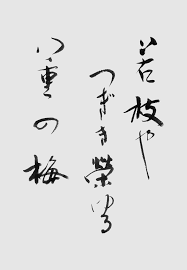 若枝や
つぎき榮ゆる
八重の梅